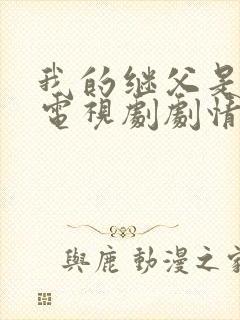 我的继父是
電視劇劇情
與鹿動漫之家